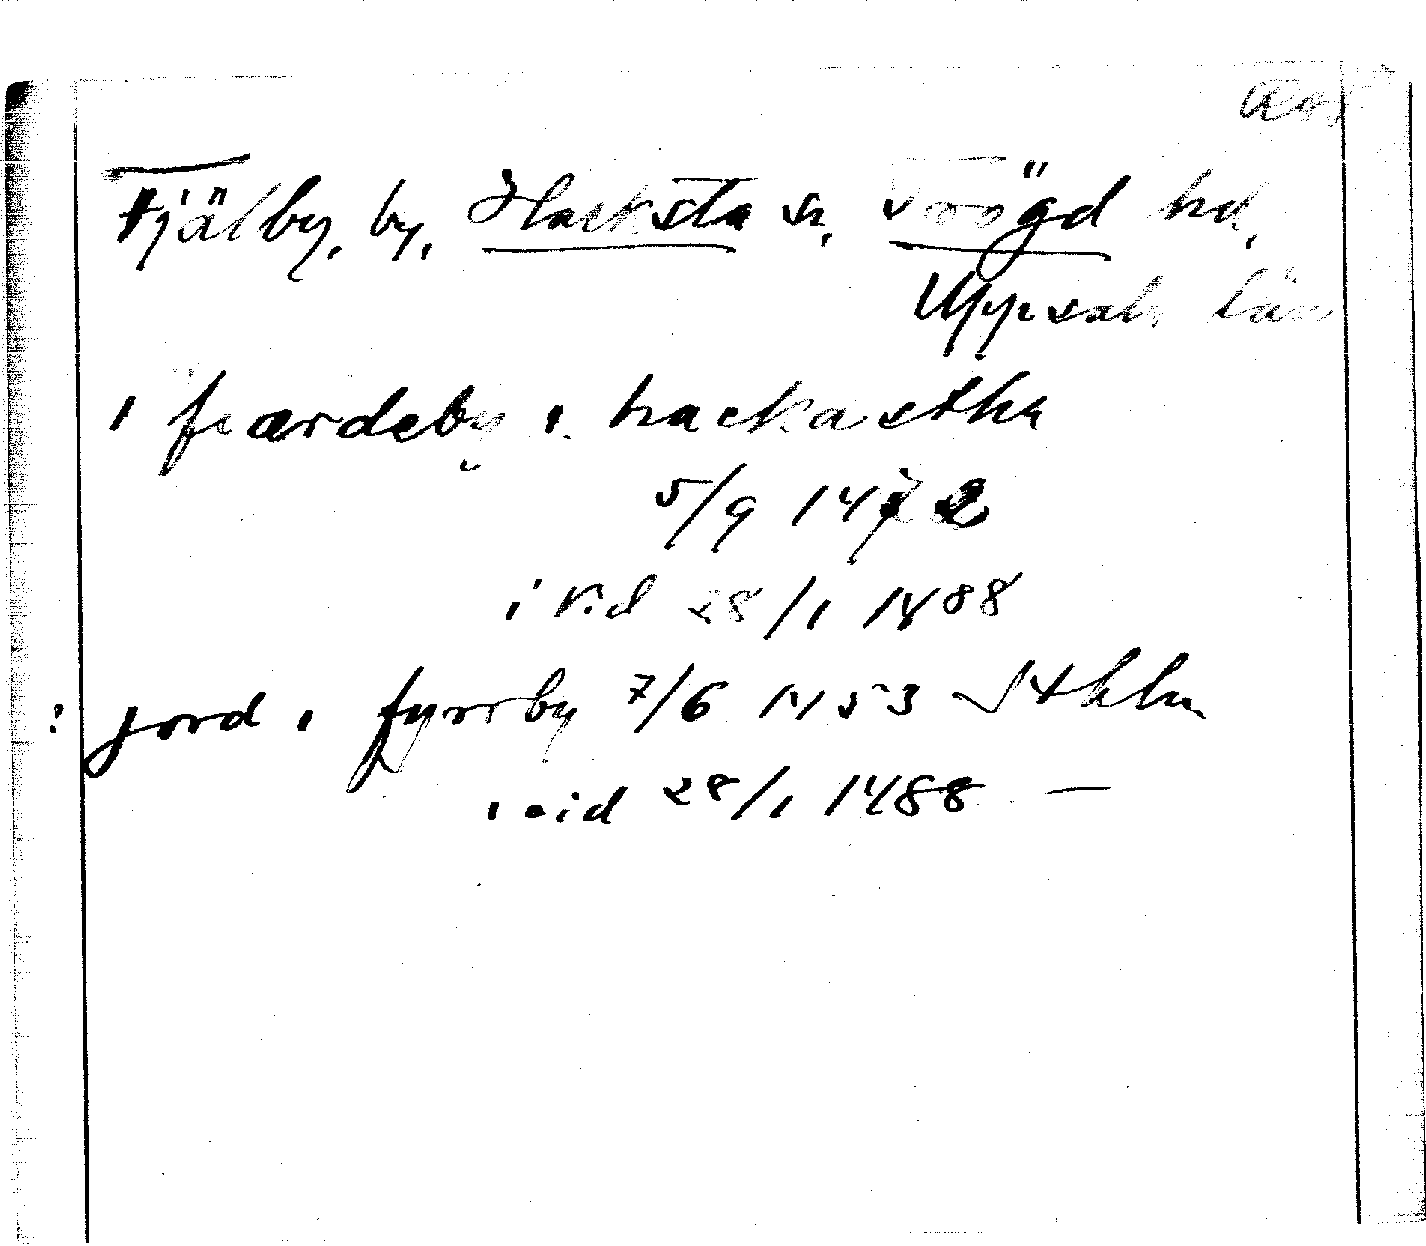 Fjälby, by, Hacksta sn, Trögd hd,
Uppsala län
i fiærdeby i hackastha
5/9 1472
ivid 28/1 1488
: jord i fyrrby 7/6 1453 Sthlm
ivid 28/1 1488 —